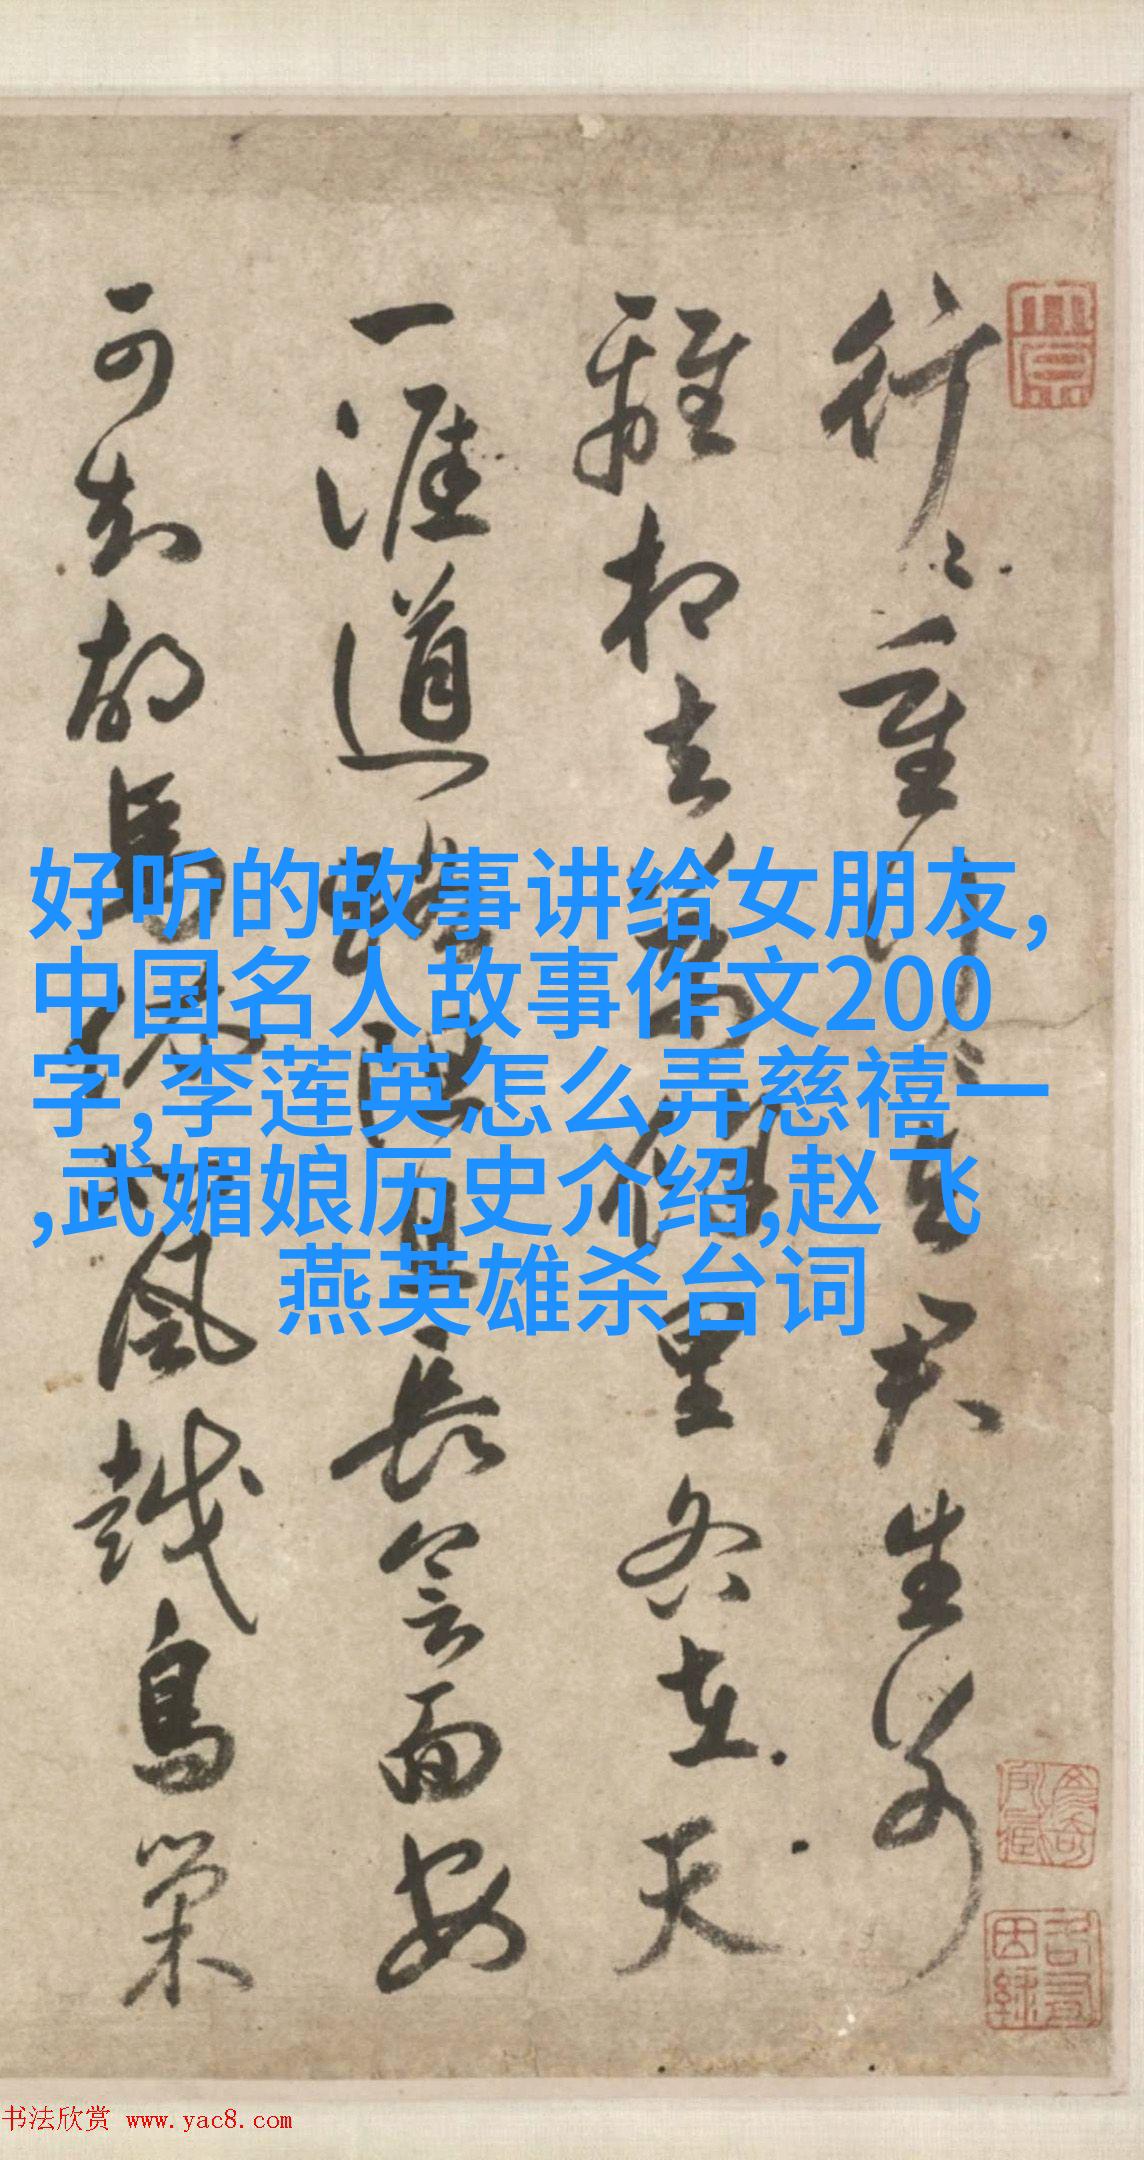 行〻重行〻與君生別
離相去萬餘里各在天
一涯道路阻且長會面安
可知胡馬依北風越鳥巢
好听的故事讲给女朋友,
中国名人故事作文200
字,李莲英怎么弄慈禧一
,武媚娘历史介绍,赵飞
燕英雄杀台词
书法欣赏 www.yac8.com